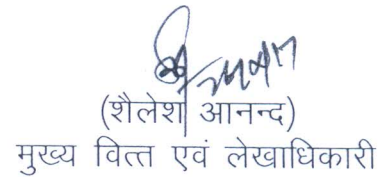 (शैलेश आनन्द)
मुख्य वित्त एवं लेखाधिकारी